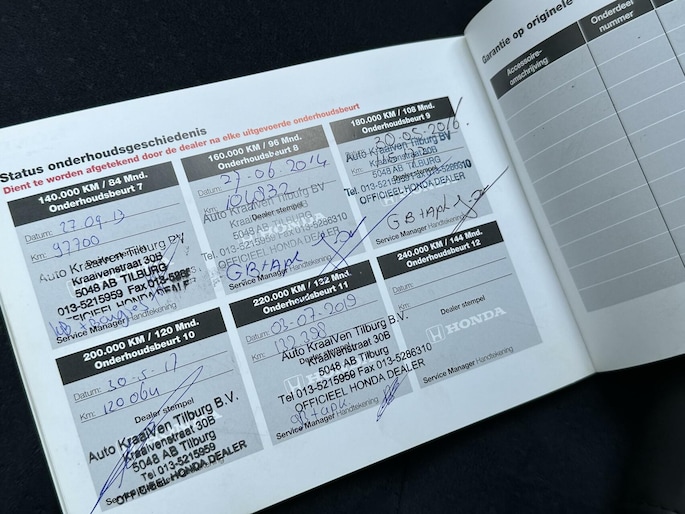 Status onderhoudsgeschiedenis
Dient te worden afgetekend door de dealer na elke uitgevoerde onderhoudsbeurt
140.000 KM / 84 Mnd.
Onderhoudsbeurt 7
Datum: 27.09.13
Km: 97700
Auto KraaiVen Tilburg BV
Kraaivenstraat 30B
5048 AB TILBURG
013-5215959 Fax 013-5286
OFFICIEEL HONDA DEALER
Service Manager Handtekening
160.000 KM / 96 Mnd.
Onderhoudsbeurt 8
Datum: 27-06-2014
Km: 104832
Auto KraaiVen Tilburg BV
Dealer stempel
Kraaivenstraat 30B
HONDA
5048 AB TILBURG
Tel. 013-5215959 Fax 013-5286310
OFFICIEEL HONDA DEALER
GB+apk
Service Manager Handtekening
180.000 KM / 108 Mnd.
Onderhoudsbeurt 9
20-05-2016
Auto KraaiVen Tilburg BV
Kraaivenstraat 30B
5048 AB TILBURG
Tel. 013-5215959 Fax 013-5286310
OFFICIEEL HONDA DEALER
GB+apk
Service Manager Handtekening
200.000 KM / 120 Mnd.
Onderhoudsbeurt 10
Datum: 30-5-17
Km: 120064
Dealer stempel
Auto KraaiVen Tilburg B.V.
Kraaivenstraat 30B
5048 AB Tilburg
Tel 013-5215959
OFFICIEEL HONDA DEALER
220.000 KM / 132 Mnd.
Onderhoudsbeurt 11
Datum: 03-07-2019
Km: 132398
Auto KraaiVen Tilburg B.V.
Dealer stempel
Kraaivenstraat 30B
5048 AB Tilburg
Tel 013-5215959 Fax 013-5286310
OFFICIEEL HONDA DEALER
Service Manager Handtekening
240.000 KM / 144 Mnd.
Onderhoudsbeurt 12
Datum:
Km:
Dealer stempel
HONDA
Service Manager Handtekening
Garantie op originele
Accessoire-
omschrijving
Onderdeel
nummer